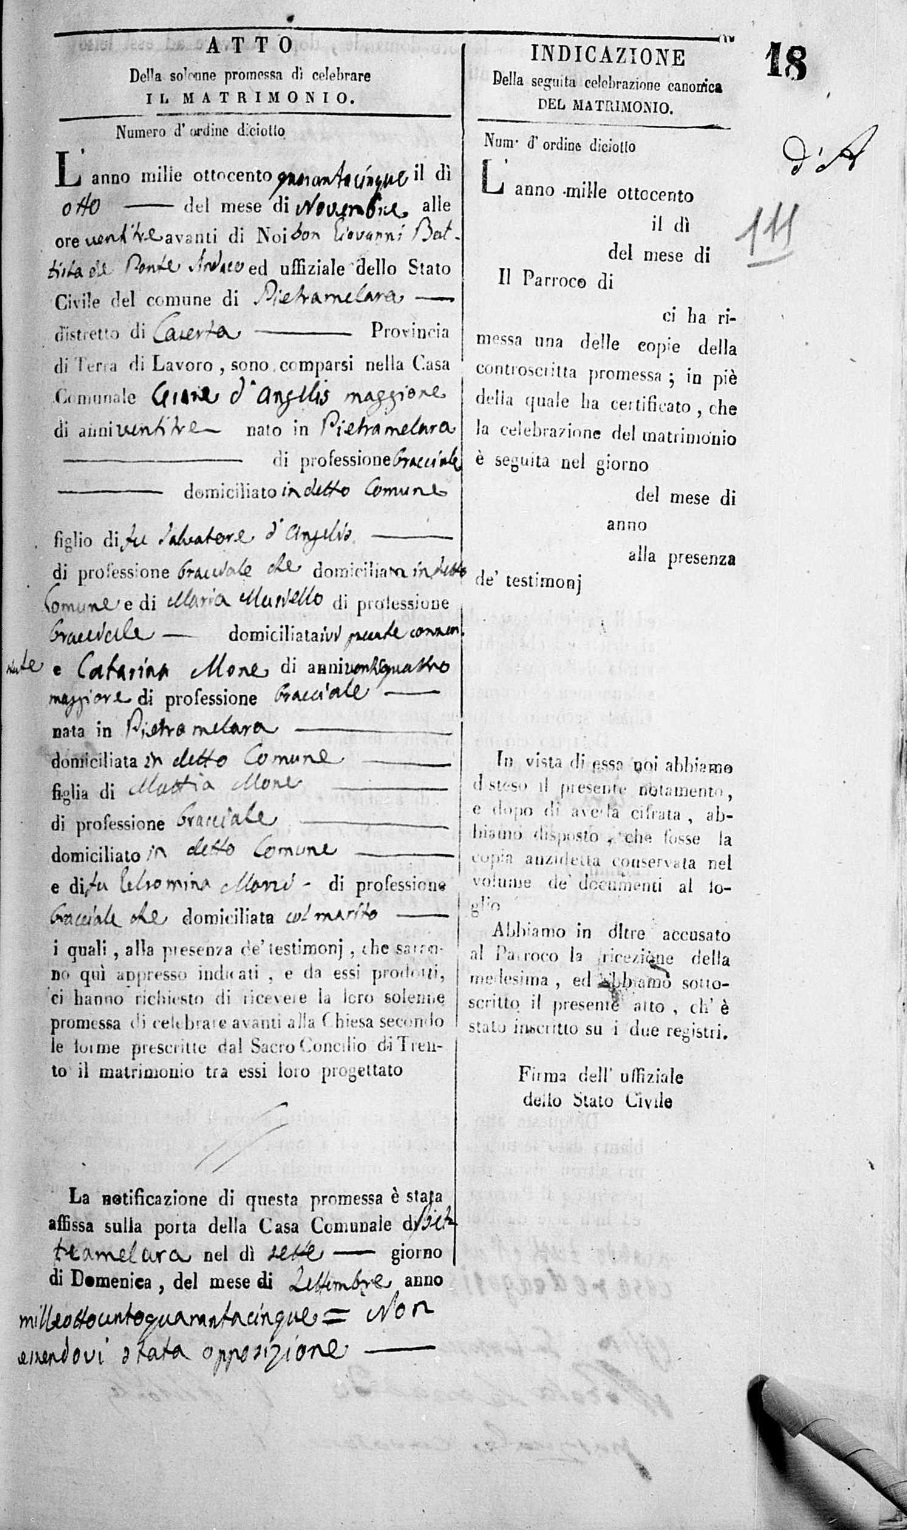 18
d'A
111
ATTO
Della solenne promessa di celebrare
IL MATRIMONIO.
Numero d'ordine diciotto
L'anno mille ottocento quarantacinque il dì
otto del mese di Novembre alle
ore ventitre avanti di Noi don Giovanni Bat-
tista de Ponte Sindaco ed uffiziale dello Stato
Civile del comune di Pietramelara
distretto di Caserta Provincia
di Terra di Lavoro, sono comparsi nella Casa
Comunale d'Angelis maggiore
di anni ventitre nato in Pietramelara
di professione Bracciale
domiciliato in detto Comune
figlio di fu Salvatore d'Angelis
di professione bracciale che domiciliava in detto
Comune e di Maria di professione
Bracciale domiciliata ivi
e Catarina Mone di anni ventiquattro
maggiore di professione bracciale
nata in Pietramelara
domiciliata in detto Comune
figlia di Mattia Mone
di professione bracciale
domiciliato in detto Comune
e di fu di professione
bracciale che domiciliata col marito
i quali, alla presenza de' testimonj, che saran-
no quì appresso indicati, e da essi prodotti,
ci hanno richiesto di ricevere la loro solenne
promessa di celebrare avanti alla Chiesa secondo
le forme prescritte dal Sacro Concilio di Tren-
to il matrimonio tra essi loro progettato
La notificazione di questa promessa è stata
affissa sulla porta della Casa Comunale di Pie-
tramelara nel dì sette giorno
di Domenica, del mese di Settembre anno
milleottocentoquarantacinque = Non
essendovi stata opposizione
INDICAZIONE
Della seguita celebrazione canonica
DEL MATRIMONIO.
Num. d'ordine diciotto
L'anno mille ottocento
il dì
del mese di
Il Parroco di
ci ha ri-
messa una delle copie della
controscritta promessa; in piè
della quale ha certificato, che
la celebrazione del matrimonio
è seguita nel giorno
del mese di
anno
alla presenza
de' testimonj
In vista di essa noi abbiamo
disteso il presente notamento,
e dopo di averla cifrata, ab-
biamo disposto, che fosse la
copia anzidetta conservata nel
volume de' documenti al fo-
glio
Abbiamo in oltre accusato
al Parroco la ricezione della
medesima, ed abbiamo sotto-
scritto il presente atto, ch'è
stato inscritto su i due registri.
Firma dell' uffiziale
dello Stato Civile